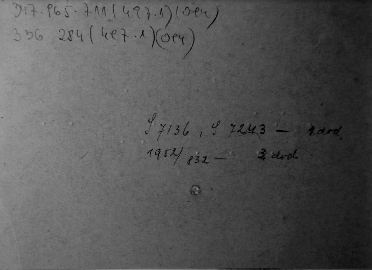 347.965.711(497.1)(094)
336 284(497.1)(094)
S 7136, S 7243 — 1 dod.
1952/832 — 2 dod.